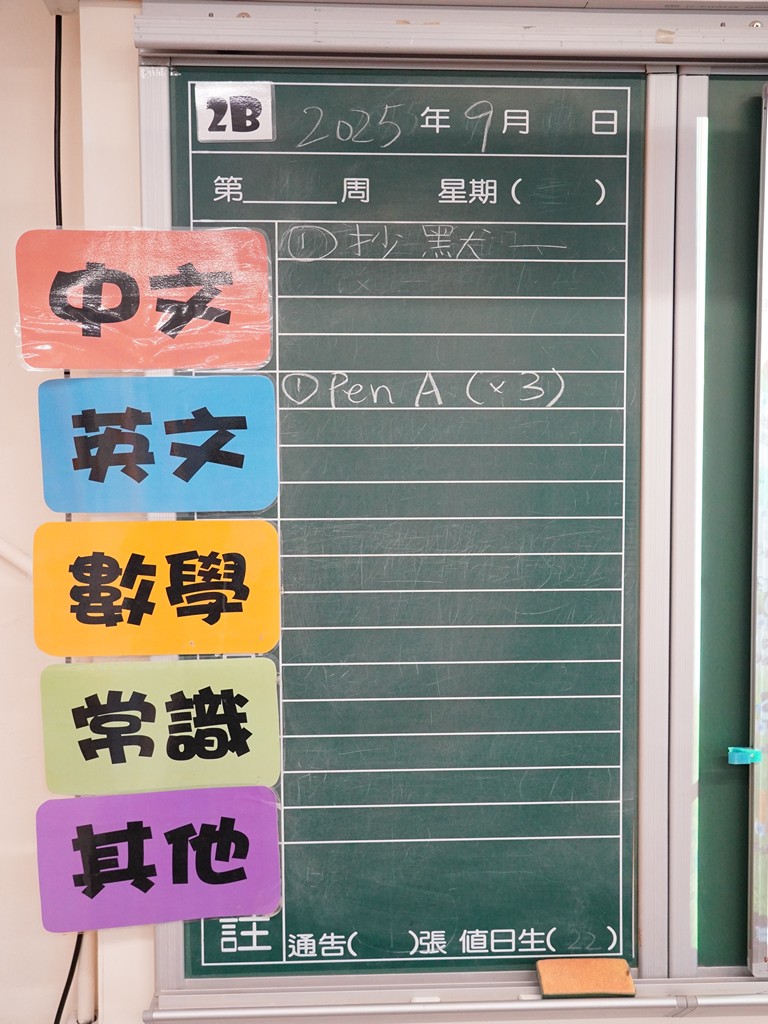 2B 2025年9月 日
第______周 星期( )
中文 ①抄默一
英文 ①Pen A (×3)
數學
常識
其他
註 通告( )張 值日生(22)